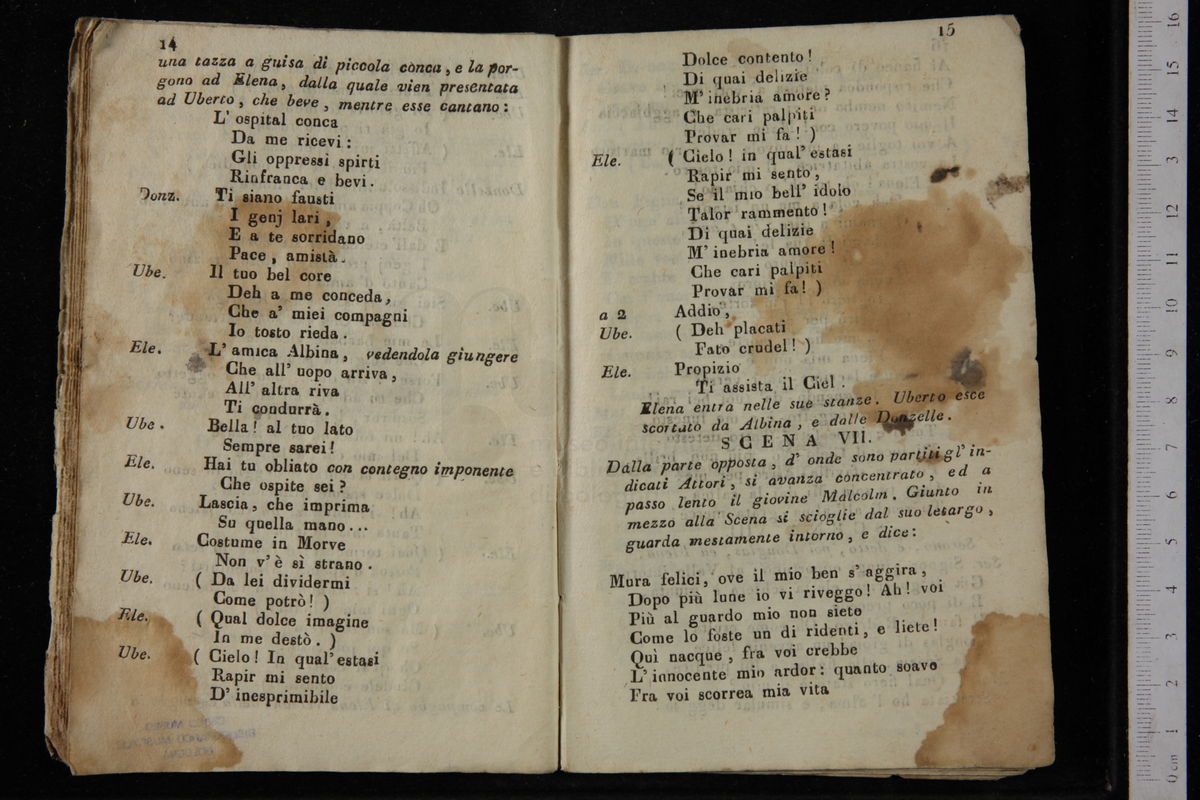 14
una tazza a guisa di piccola conca, e la por-
gono ad Elena, dalla quale vien presentata
ad Uberto, che beve, mentre esse cantano:
L' ospital conca
Da me ricevi:
Gli oppressi spirti
Rinfranca e bevi.
Donz. Ti siano fausti
I genj lari,
E a te sorridano
Pace, amistà.
Ube. Il tuo bel core
Deh a me conceda,
Che a' miei compagni
Io tosto rieda.
Ele. L' amica Albina, vedendola giungere
Che all' uopo arriva,
All' altra riva
Ti condurrà.
Ube. Bella! al tuo lato
Sempre sarei!
Ele. Hai tu obliato con contegno imponente
Che ospite sei?
Ube. Lascia, che imprima
Su quella mano...
Ele. Costume in Morve
Non v' è sì strano.
Ube. ( Da lei dividermi
Come potrò! )
Ele. ( Qual dolce imagine
In me destò. )
Ube. ( Cielo! In qual' estasi
Rapir mi sento
D' inesprimibile
15
Dolce contento!
Di quai delizie
M' inebria amore?
Che cari palpiti
Provar mi fa! )
Ele. ( Cielo! in qual' estasi
Rapir mi sento,
Se il mio bell' idolo
Talor rammento!
Di quai delizie
M' inebria amore!
Che cari palpiti
Provar mi fa! )
a 2 Addio,
Ube. ( Deh placati
Fato crudel! )
Ele. Propizio
Ti assista il Ciel.
Elena entra nelle sue stanze. Uberto esce
scortato da Albina, e dalle Donzelle.
SCENA VII.
Dalla parte opposta, d' onde sono partiti gl' in-
dicati Attori, si avanza concentrato, ed a
passo lento il giovine Malcolm. Giunto in
mezzo alla Scena si scioglie dal suo letargo,
guarda mestamente intorno, e dice:
Mura felici, ove il mio ben s' aggira,
Dopo più lune io vi riveggo! Ah! voi
Più al guardo mio non siete
Come lo foste un di ridenti, e liete!
Quì nacque, fra voi crebbe
L' innocente mio ardor: quanto soave
Fra voi scorrea mia vita